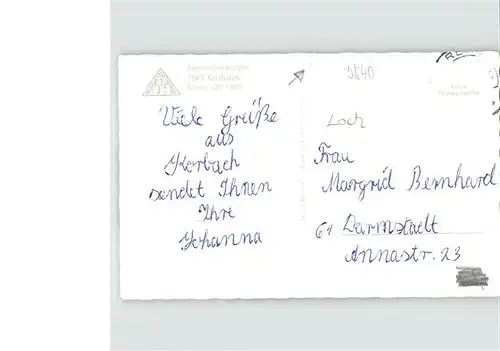 Jugendherberge
3540 Korbach
Viele Grüße
aus
Korbach
sendet Ihnen
Ihre
Johanna
5840
Loch
Frau
Margrid Bernhard
61 Darmstadt
Annastr. 23